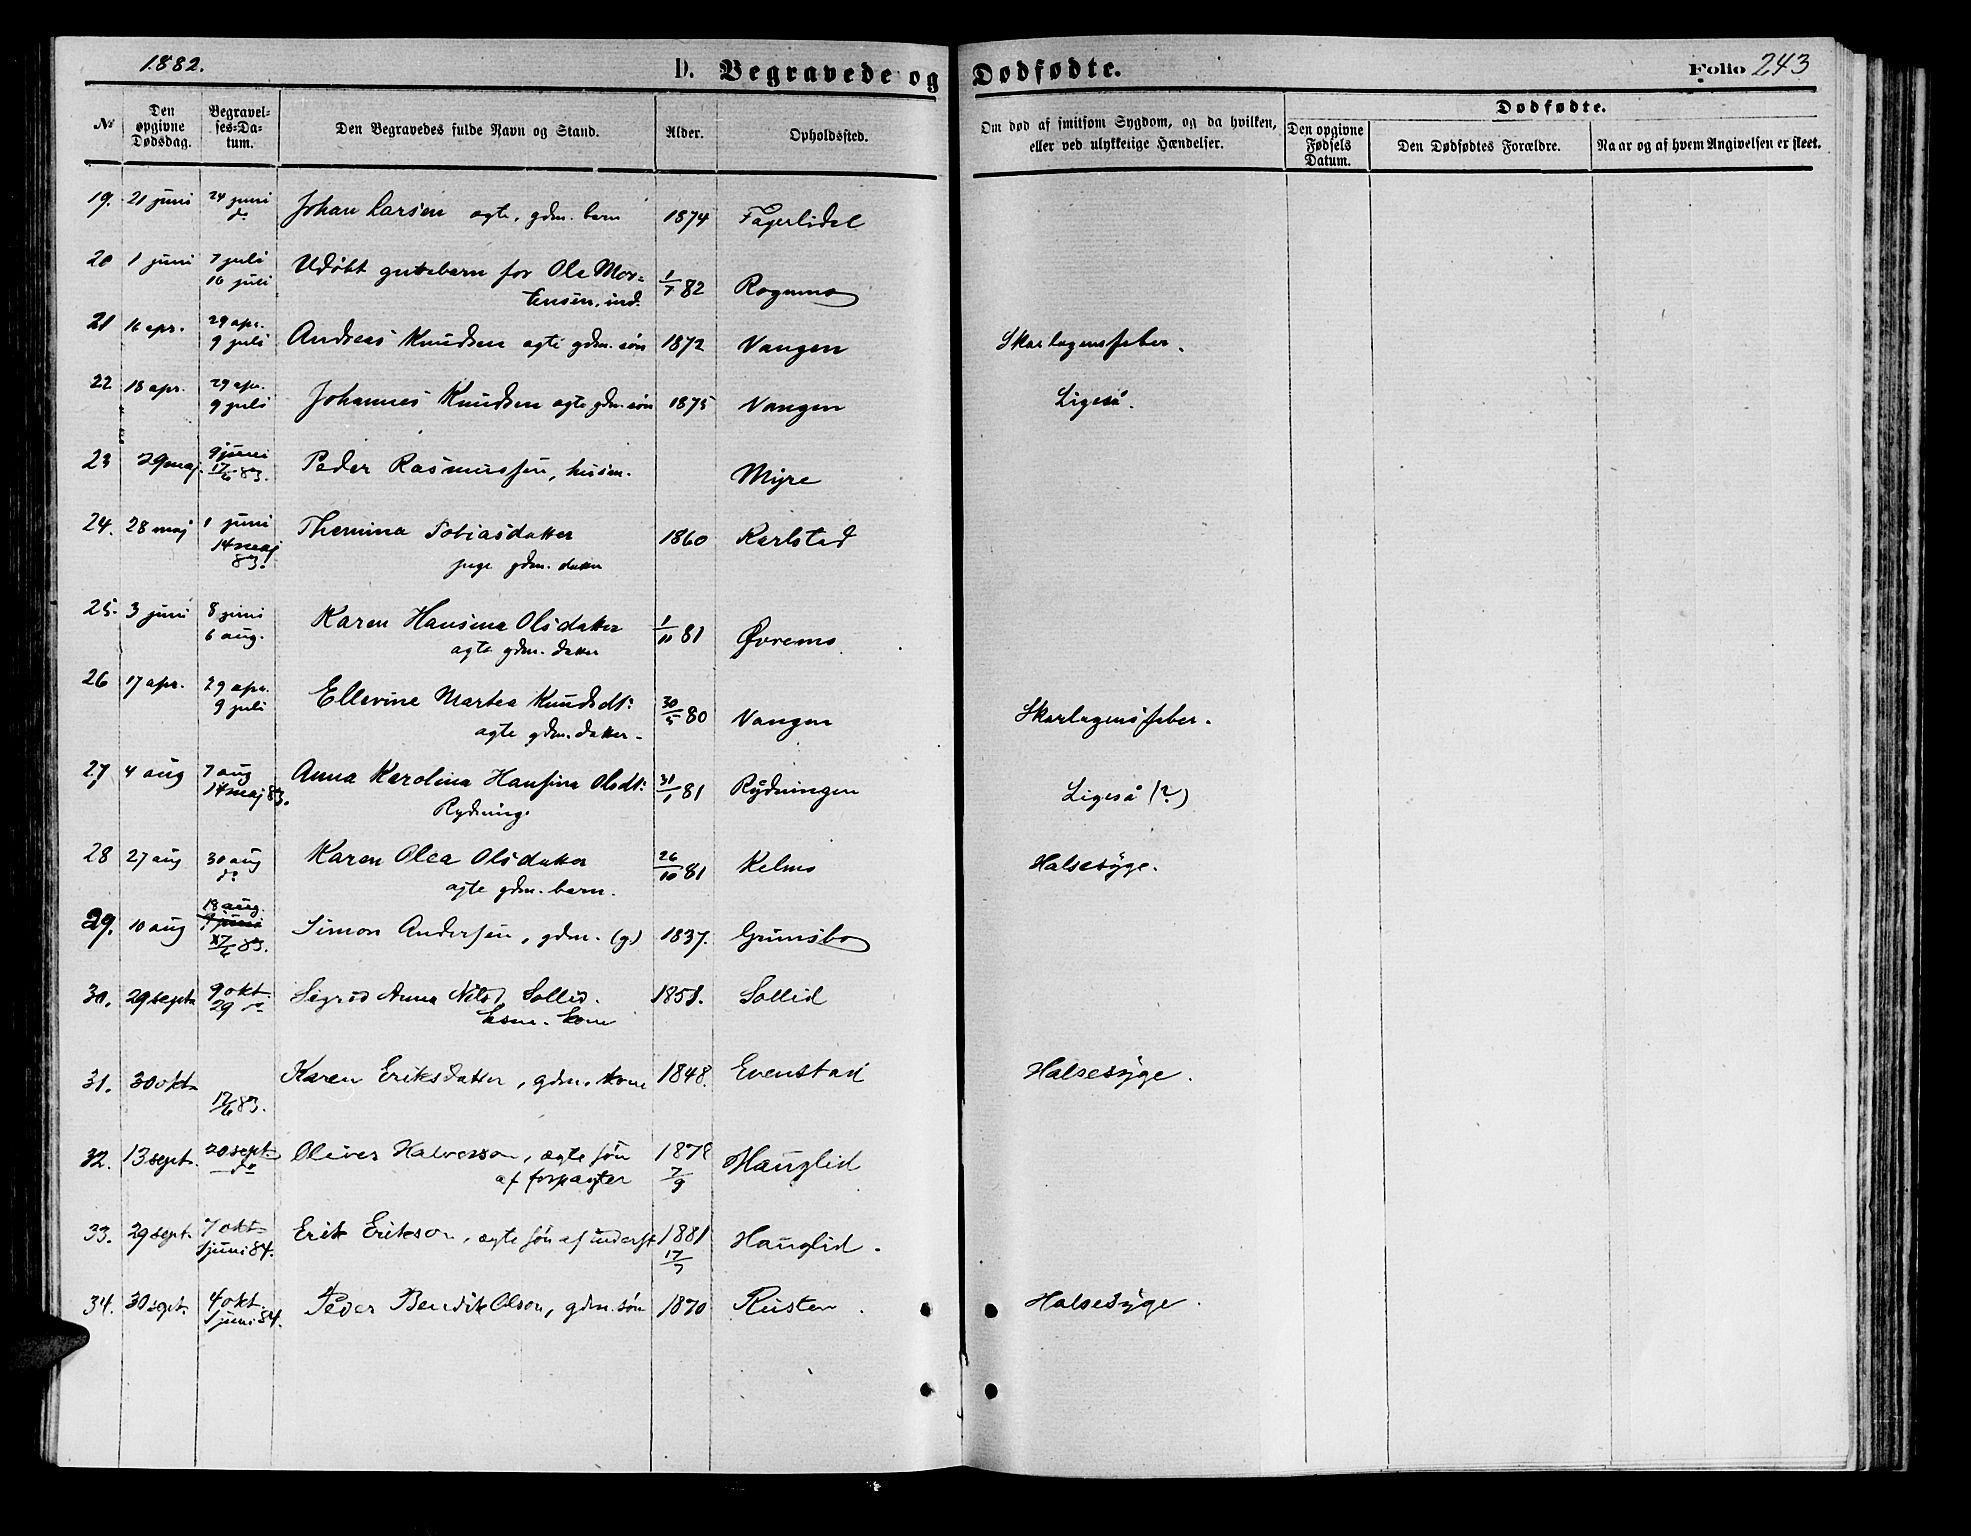 1882.
D. Begravede og Dødfødte.
Folio 243
№
Den opgivne Dødsdag.
Begravelses-Datum.
Den Begravedes fulde Navn og Stand.
Alder.
Opholdssted.
Om død af smitsom Sygdom, og da hvilken, eller ved ulykkelige Hændelser.
Dødfødte.
Den opgivne Fødsels Datum.
Den Dødfødtes Forældre.
Naar og af hvem Angivelsen er skeet.
19. 21 juni 24 juni Johan Larsen ægte, gdm. barn 1874 Fagerlidal
do
20 1 juni 7 juli Udøbt guttebarn for Ole Mor= 1/7 82 Rognmo
16 juli tensen, ind.
21 16 apr. 29 apr. Andreas Knudsen ægte gdm. søn 1872 Vangen Skarlagensfeber.
9 juli
22 18 apr. 29 apr. Johannes Knudsen ægte gdm. søn 1875 Vangen Ligeså.
9 juli
23 29 maj. 9 juni Peder Rasmussen, husm. Myre
17/6 83.
24. 28 maj 1 juni Themina Tobiasdatter 1860 Karlstad
14 maj 83. pige gdm. datter
25. 3 juni 8 juni Karen Hansina Olsdatter 1/11 81 Øvremo
6 aug. ægte gdm. datter
26 17 apr. 29 apr. Ellevine Martea Knudsdt: 30/5 80 Vangen Skarlagensfeber.
9 juli ægte gdm. datter.
27 4 aug 7 aug Anna Karolina Hansina Olsdt: 31/1 81 Rydningen Ligeså (?)
14 maj 83. Rydning.
28 27 aug 30 aug Karen Olea Olsdatter 26/10 81 Kelmo Halsesyge.
do ægte gdm. barn.
29. 10 aug 18 aug. Simon Andersen, gdm. (g) 1837. Grunsbo
9 juni
17/6 83.
30. 29 sept. 9 okt. Sigrid Anna Nilsd. Sollid. 1851. Sollid
29 do kone
31. 30 okt. Karen Eriksdatter, gdm. kone 1848. Evenstad Halsesyge.
17/6 83.
32. 13 sept. 20 sept. Oliver Halvorson, ægte søn 1878 Hauglid
do af forpagter 7/9
33. 29 sept. 7 okt. Erik Erikson, ægte søn af inderst 1881 Hauglid.
1 juni 84. 17/7
34. 30 sept. 4 okt. Peder Bendik Olson, gdm. søn 1870 Rusten. Halsesyge.
1 juni 84.